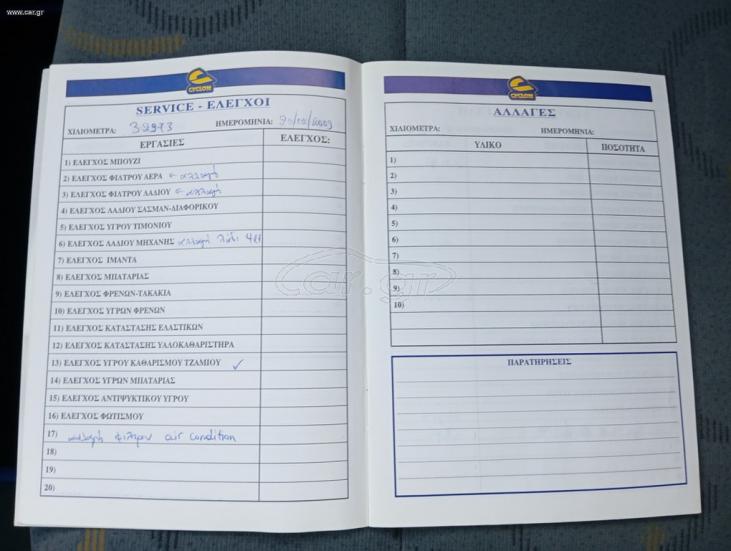 www.car.gr
CYCLON
SERVICE - ΕΛΕΓΧΟΙ
ΧΙΛΙΟΜΕΤΡΑ: ΗΜΕΡΟΜΗΝΙΑ:
ΕΡΓΑΣΙΕΣ ΕΛΕΓΧΟΣ:
1) ΕΛΕΓΧΟΣ ΜΠΟΥΖΙ
2) ΕΛΕΓΧΟΣ ΦΙΛΤΡΟΥ ΑΕΡΑ ← αλλαγή
3) ΕΛΕΓΧΟΣ ΦΙΛΤΡΟΥ ΛΑΔΙΟΥ ← αλλαγή
4) ΕΛΕΓΧΟΣ ΛΑΔΙΟΥ ΣΑΣΜΑΝ-ΔΙΑΦΟΡΙΚΟΥ
5) ΕΛΕΓΧΟΣ ΥΓΡΟΥ ΤΙΜΟΝΙΟΥ
6) ΕΛΕΓΧΟΣ ΛΑΔΙΟΥ ΜΗΧΑΝΗΣ αλλαγή
7) ΕΛΕΓΧΟΣ ΙΜΑΝΤΑ
8) ΕΛΕΓΧΟΣ ΜΠΑΤΑΡΙΑΣ
9) ΕΛΕΓΧΟΣ ΦΡΕΝΩΝ-ΤΑΚΑΚΙΑ
10) ΕΛΕΓΧΟΣ ΥΓΡΩΝ ΦΡΕΝΩΝ
11) ΕΛΕΓΧΟΣ ΚΑΤΑΣΤΑΣΗΣ ΕΛΑΣΤΙΚΩΝ
12) ΕΛΕΓΧΟΣ ΚΑΤΑΣΤΑΣΗΣ ΥΑΛΟΚΑΘΑΡΙΣΤΗΡΑ
13) ΕΛΕΓΧΟΣ ΥΓΡΟΥ ΚΑΘΑΡΙΣΜΟΥ ΤΖΑΜΙΟΥ ✓
14) ΕΛΕΓΧΟΣ ΥΓΡΩΝ ΜΠΑΤΑΡΙΑΣ
15) ΕΛΕΓΧΟΣ ΑΝΤΙΨΥΚΤΙΚΟΥ ΥΓΡΟΥ
16) ΕΛΕΓΧΟΣ ΦΩΤΙΣΜΟΥ
17) αλλαγή φιλτρου air condition
18)
19)
20)
CYCLON
ΑΛΛΑΓΕΣ
ΧΙΛΙΟΜΕΤΡΑ: ΗΜΕΡΟΜΗΝΙΑ:
ΥΛΙΚΟ ΠΟΣΟΤΗΤΑ
1)
2)
3)
4)
5)
6)
7)
8)
9)
10)
ΠΑΡΑΤΗΡΗΣΕΙΣ
car.gr